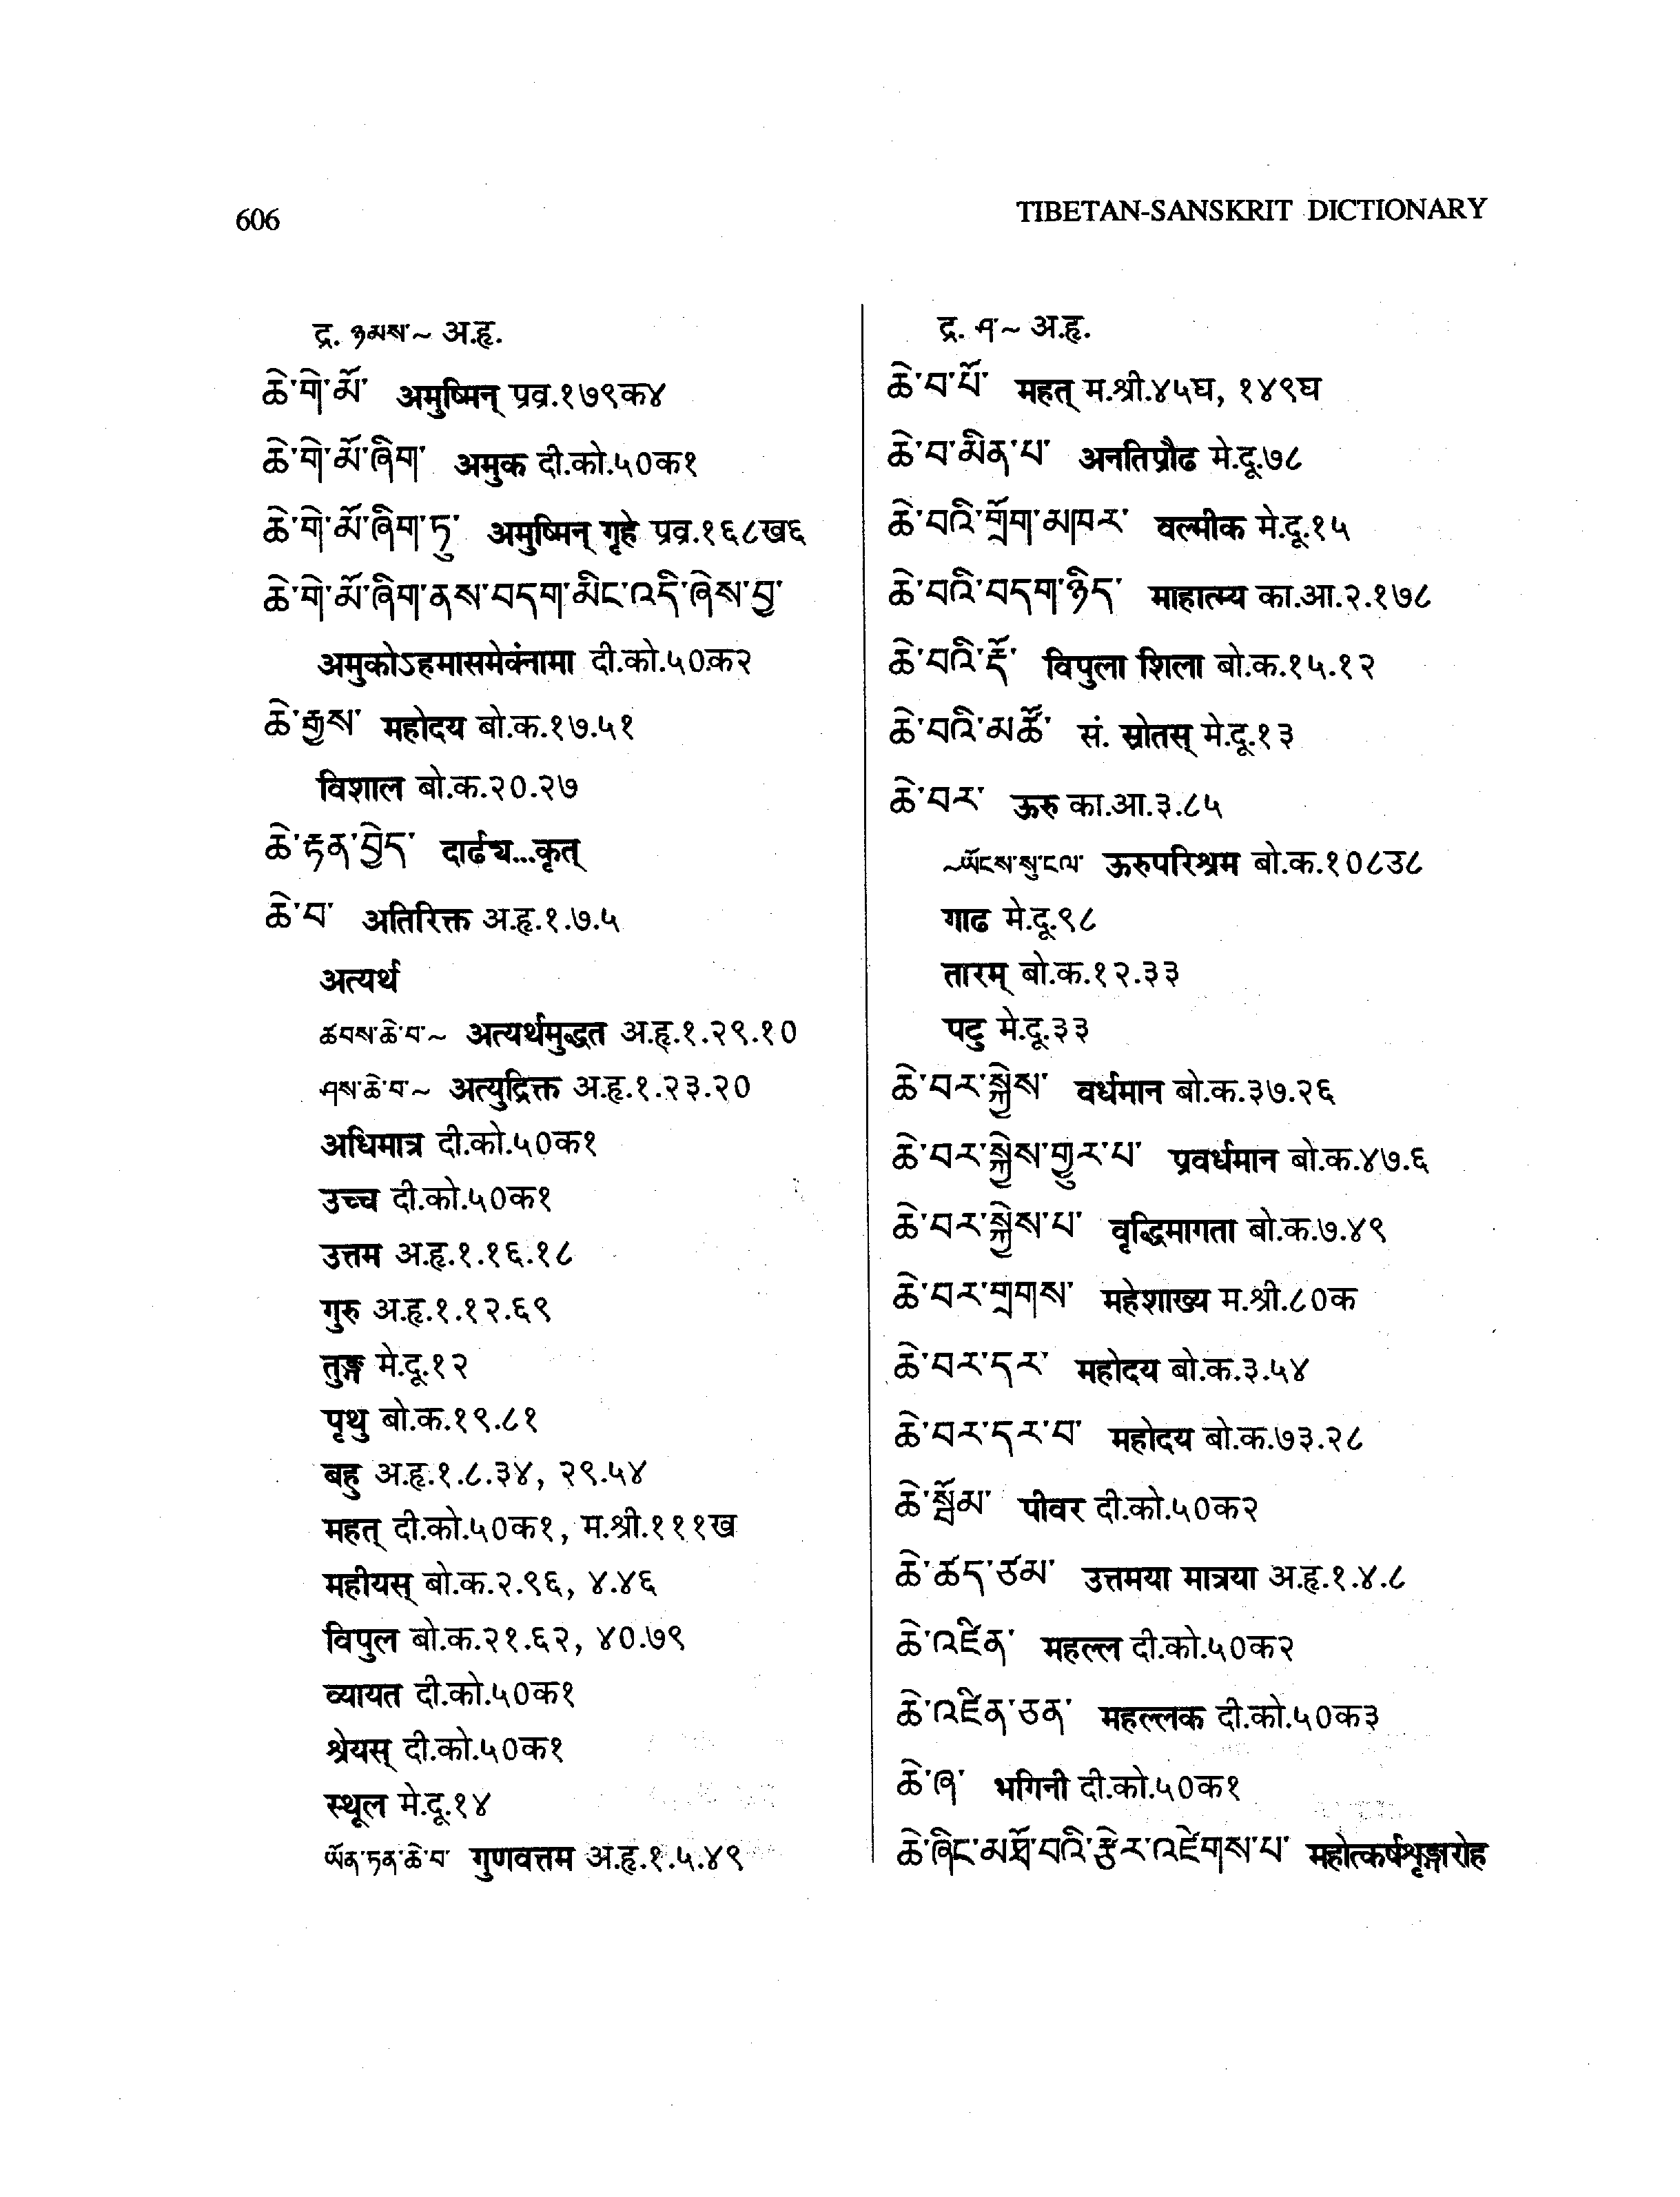 606
TIBETAN-SANSKRIT DICTIONARY
द्र. ཉམས་~ अ.हृ.
ཆེ་གེ་མོ་ अमुष्मिन् प्रव्र.१७९क४
ཆེ་གེ་མོ་ཞིག་ अमुक दी.को.५०क१
ཆེ་གེ་མོ་ཞིག་ཏུ་ अमुष्मिन् गृहे प्रव्र.१६८ख६
ཆེ་གེ་མོ་ཞིག་ནས་བདག་མིང་འདི་ཞེས་བྱ་
अमुकोऽहमासमेवंनामा दी.को.५०क२
ཆེ་རྒྱས་ महोदय बो.क.१७.५१
विशाल बो.क.२०.२७
ཆེ་རྟན་བྱེད་ दार्ढ्य...कृत्
ཆེ་བ་ अतिरिक्त अ.हृ.१.७.५
अत्यर्थ
ཚབས་ཆེ་བ་~ अत्यर्थमुद्धत अ.हृ.१.२९.१०
ཤས་ཆེ་བ་~ अत्युद्रिक्त अ.हृ.१.२३.२०
अधिमात्र दी.को.५०क१
उच्च दी.को.५०क१
उत्तम अ.हृ.१.१६.१८
गुरु अ.हृ.१.१२.६९
तुङ्ग मे.दू.१२
पृथु बो.क.१९.८१
बहु अ.हृ.१.८.३४, २९.५४
महत् दी.को.५०क१, म.श्री.१११ख
महीयस् बो.क.२.९६, ४.४६
विपुल बो.क.२१.६२, ४०.७९
व्यायत दी.को.५०क१
श्रेयस् दी.को.५०क१
स्थूल मे.दू.१४
ཡོན་ཏན་ཆེ་བ་ गुणवत्तम अ.हृ.१.५.४९
द्र. ཤ་~ अ.हृ.
ཆེ་བ་པོ་ महत् म.श्री.४५घ, १४९घ
ཆེ་བ་མིན་པ་ अनतिप्रौढ मे.दू.७८
ཆེ་བའི་གྲོག་མཁར་ वल्मीक मे.दू.१५
ཆེ་བའི་བདག་ཉིད་ माहात्म्य का.आ.२.१७८
ཆེ་བའི་རྡོ་ विपुला शिला बो.क.१५.१२
ཆེ་བའི་མཚོ་ सं. स्रोतस् मे.दू.१३
ཆེ་བར་ ऊरु का.आ.३.८५
~ཡོངས་སུ་ངལ་ ऊरुपरिश्रम बो.क.१०८उ८
गाढ मे.दू.९८
तारम् बो.क.१२.३३
पटु मे.दू.३३
ཆེ་བར་སྐྱེས་ वर्धमान बो.क.३७.२६
ཆེ་བར་སྐྱེས་གྱུར་པ་ प्रवर्धमान बो.क.४७.६
ཆེ་བར་སྐྱེས་པ་ वृद्धिमागता बो.क.७.४९
ཆེ་བར་གྲགས་ महेशाख्य म.श्री.८०क
ཆེ་བར་དར་ महोदय बो.क.३.५४
ཆེ་བར་དར་བ་ महोदय बो.क.७३.२८
ཆེ་སྦོམ་ पीवर दी.को.५०क२
ཆེ་ཚད་ཙམ་ उत्तमया मात्रया अ.हृ.१.४.८
ཆེ་འཛིན་ महल्ल दी.को.५०क२
ཆེ་འཛིན་ཅན་ महल्लक दी.को.५०क३
ཆེ་ཞ་ भगिनी दी.को.५०क१
ཆེ་ཞིང་མཐོ་བའི་རྩེར་འཛེགས་པ་ महोत्कर्षशृङ्गारोह